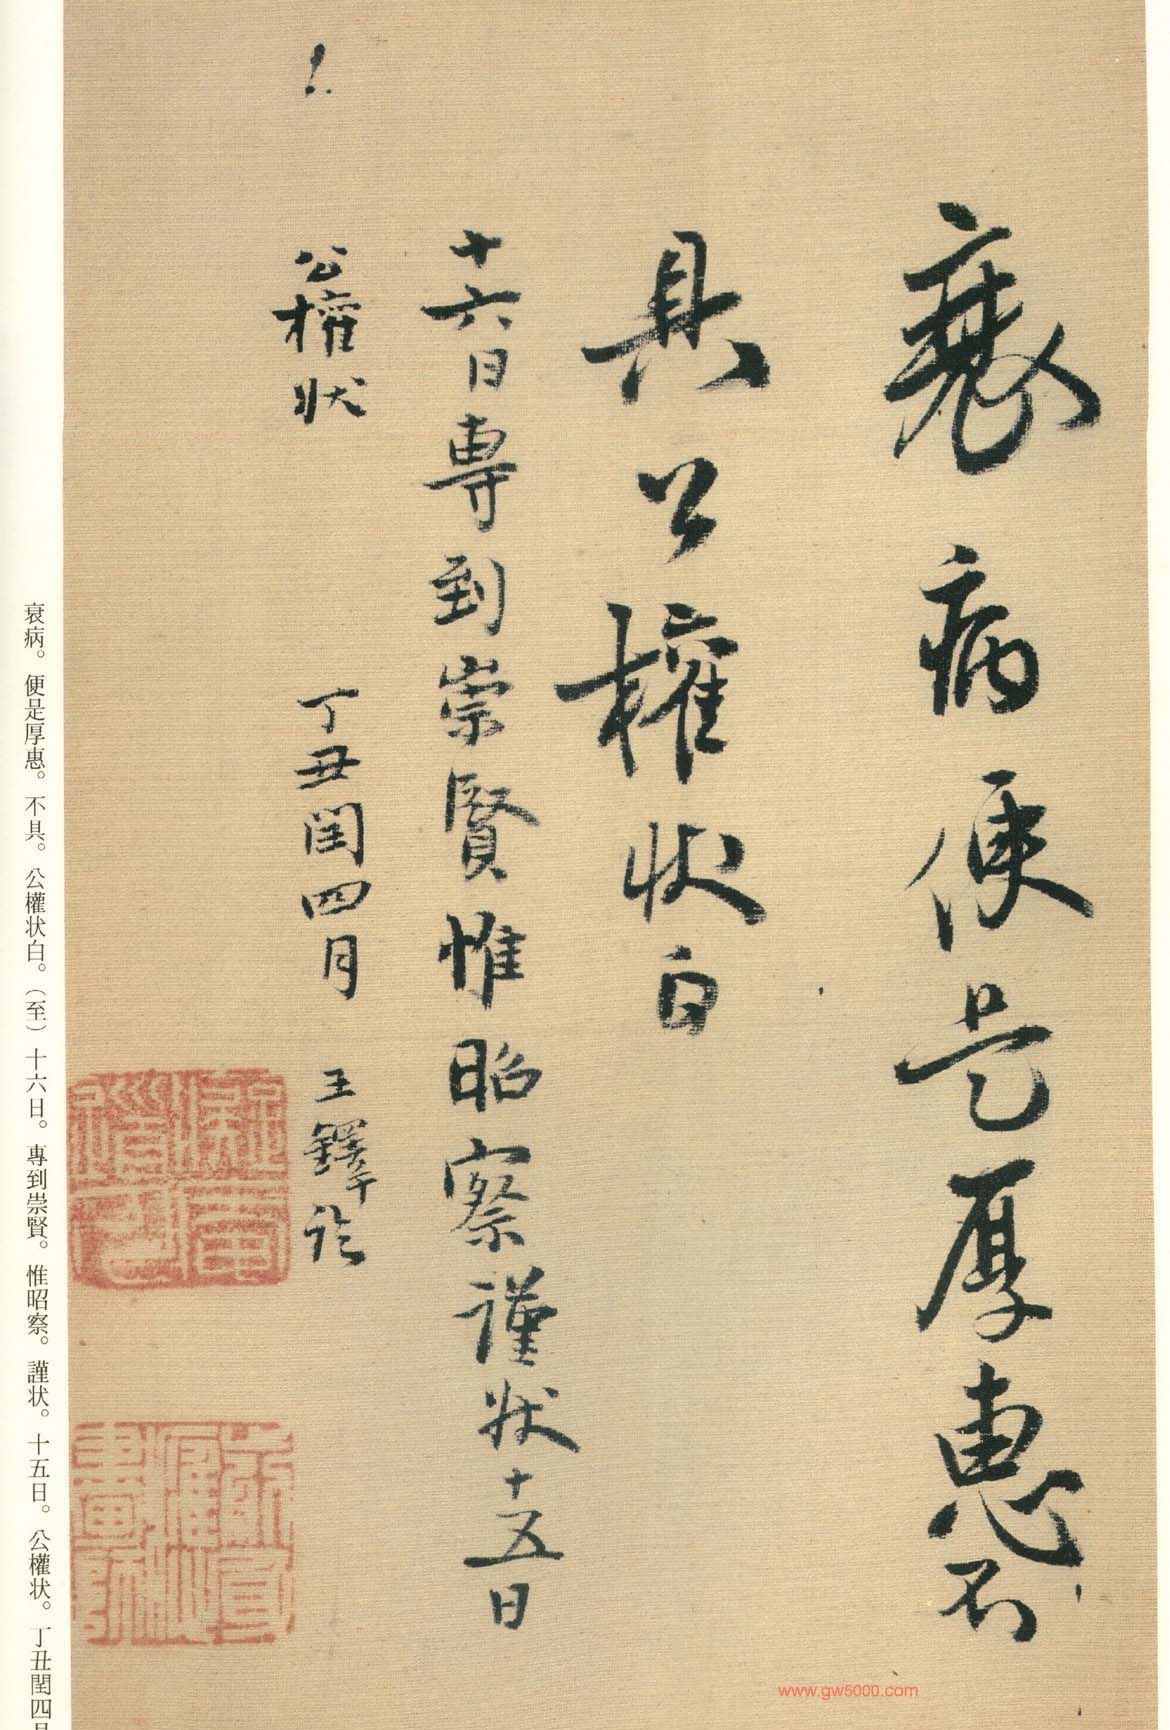 衰病便是厚惠不
具公權状白
十六日專到崇賢惟昭察謹状十五日
公權状 丁丑閏四月 王鐸臨
衰病。便是厚惠。不具。公權状白。（至）十六日。專到崇賢。惟昭察。謹状。十五日。公權状。丁丑閏四月
www.gw5000.com